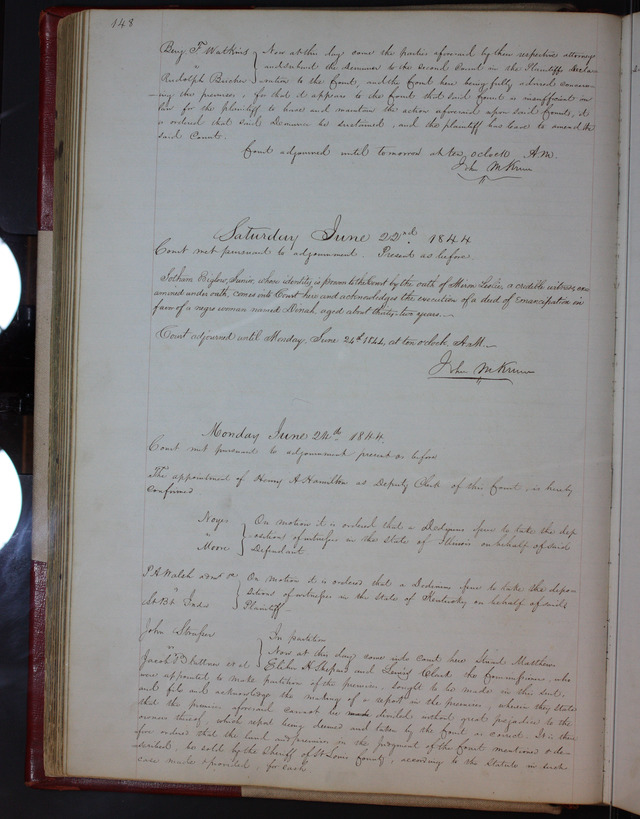 148
Benj F Watkins } Now at this day come the parties aforesaid by their respective attorneys
" and submit the Demurrer to the Second Count in the Plaintiffs Decla-
Rudolph Bircher ration to the Court, and the Court here being fully advised concern-
ing the premises, for that it appears to the Court that said Count is insufficient in
law for the plaintiff to have and maintain the action aforesaid upon said Count, it
is ordered that said Demurrer be sustained, and the plaintiff has leave to amend the
said Count.
Court adjourned until tomorrow at ten oclock A.M.
John M Krum
Saturday June 22nd 1844
Court met pursuant to adjournment. Present as before.
Biglow, Junior, whose identity is proven to the Court by the oath of Leslie, a credible witness, ex-
amined under oath, comes into Court here and acknowledges the execution of a deed of emancipation in
favor of a negro woman named Dinah, aged about thirty-two years.
Court adjourned until Monday, June 24th 1844, at ten oclock A.M.
John M Krum
Monday June 24th 1844.
Court met pursuant to adjournment present as before
The appointment of Henry A Hamilton as Deputy Clerk of this Court, is hereby
confirmed
Noyes } On motion it is ordered that a Dedimus issue to take the dep
" osition of witnesses in the State of Illinois on behalf of said
Moore Defendant
P. A. Walsh } On motion it is ordered that a Dedimus issue to take the depo
" sitions of witnesses in the State of Kentucky on behalf of said
Plaintiff
John In partition
" } Now at this day come into Court here Matthews
Jacob et al Elihu H Shepard and Lewis Clark the Commissioners, who
were appointed to make partition of the premises sought to be made in this suit,
and file and acknowledge the making of a report in the premises, wherein they state
that the premises aforesaid cannot be divided without great prejudice to the
owners thereof, which report being deemed and taken by the Court as correct. It is there
fore ordered that the land and premises in the judgment of the Court mentioned & de-
scribed, be sold by the Sheriff of St Louis County, according to the Statute in such
case made & provided, for cash